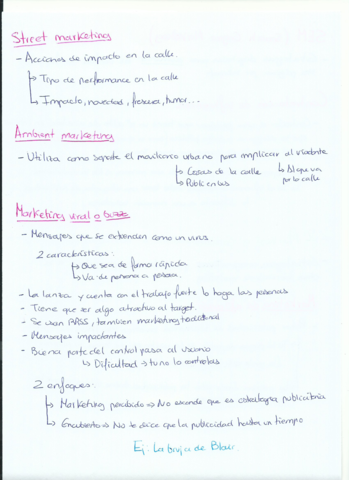 Street marketing
- Acciones de impacto en la calle.
↳ Tipo de performance en la calle
↳ Impacto, novedad, frescura, humor...
Ambient marketing
- Utiliza como soporte el mobiliario urbano para implicar al viandante
↳ Cosas de la calle ↳ Al que va
↳ Publicistas por la calle
Marketing viral o buzz
- Mensajes que se extienden como un virus.
2 características:
↳ Que sea de forma rápida
↳ Va de persona a persona.
- La lanza y cuenta con el trabajo fuerte lo haga las personas
- Tiene que ser algo atractivo al target
- Se usan RRSS, también marketing tradicional
- Mensajes impactantes
- Buena parte del control pasa al usuario
↳ Dificultad → tu no lo controlas
2 enfoques:
↳ Marketing percibido → No esconde que es estrategia publicitaria
↳ Encubierto → No te dice que la publicidad hasta un tiempo
Ej: La bruja de Blair.